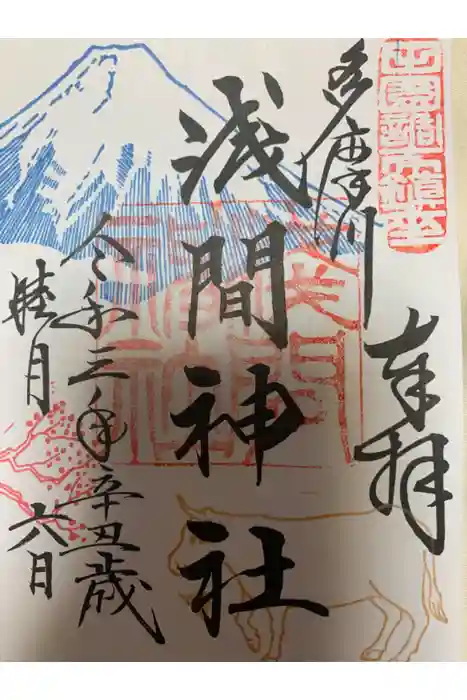 奉拝
多摩川
浅間神社
令和三年辛丑歳
睦月
六日